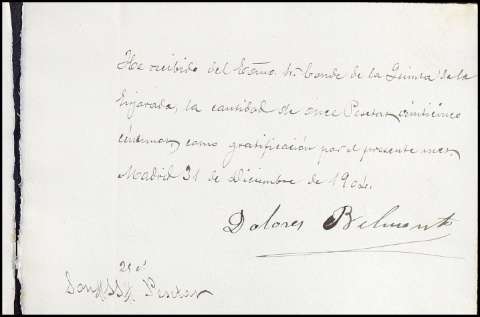 He recibido del Exmo. Sr. Conde de la Quinta de la
Enjarada, la cantidad de once Pesetas veinticinco
céntimos, como gratificación por el presente mes,
Madrid 31 de Diciembre de 1904.
Dolores Belmonte
25 cs
Son Pesetas